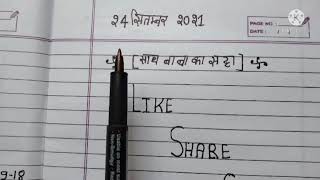 २4 सितम्बर २०२1
PAGE NO.:
DATE:
[साथ बाबा का सट्टा]
LIKE
SHARE
9-18